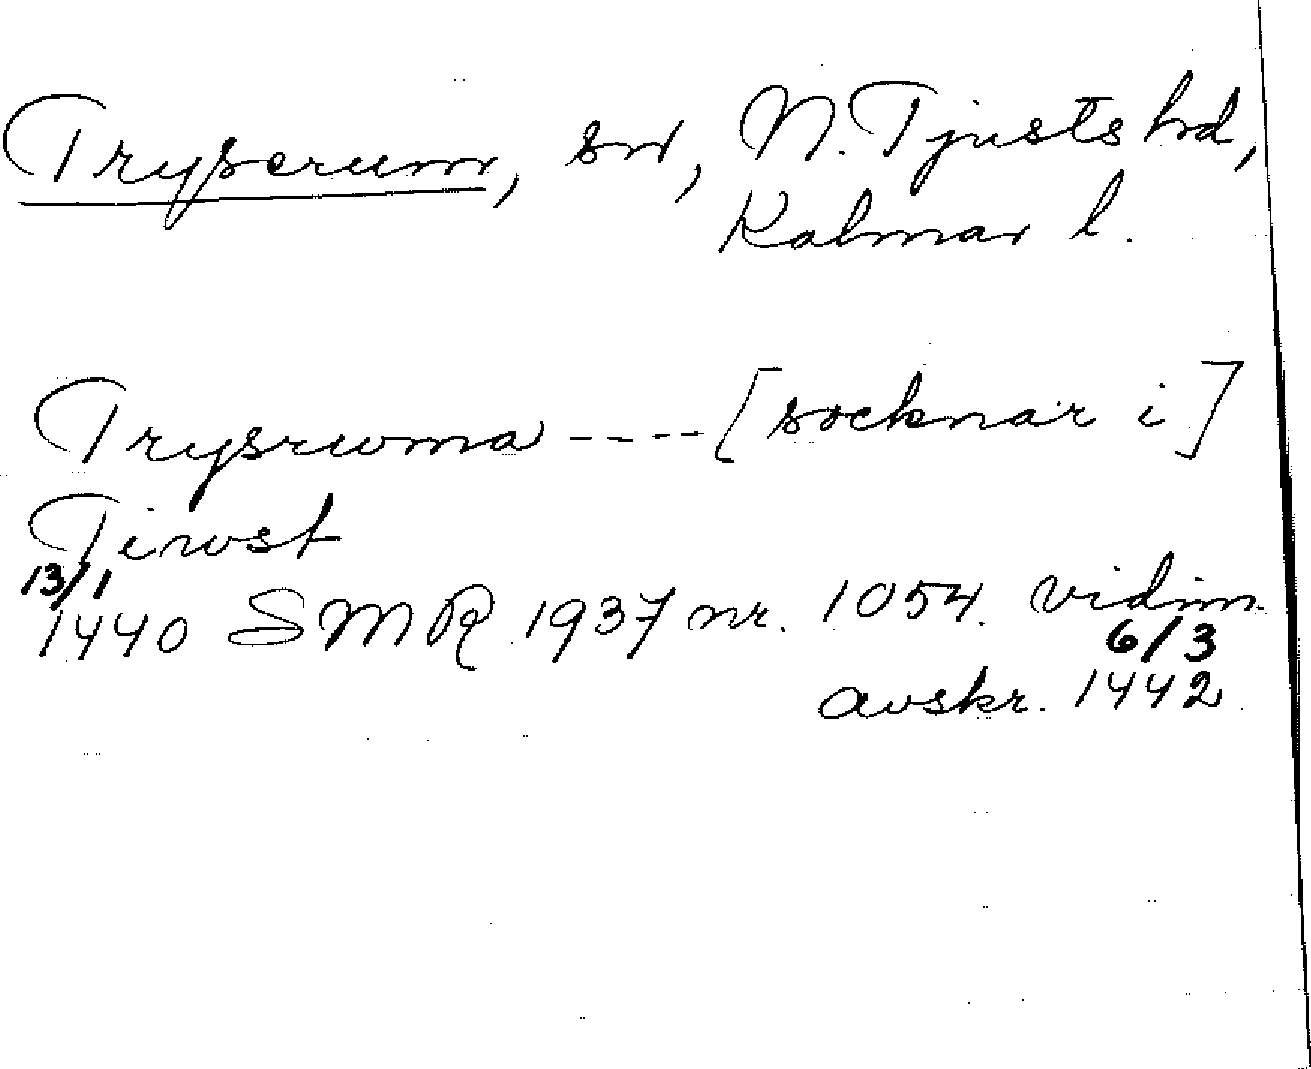 Tryserum, sn, N. Tjusts hd,
Kalmar l.
Trysrwma ---- [socknar i]
Tiwst
13/1
1440 SMR 1937 nr. 1054. vidim.
6/3
avskr. 1442